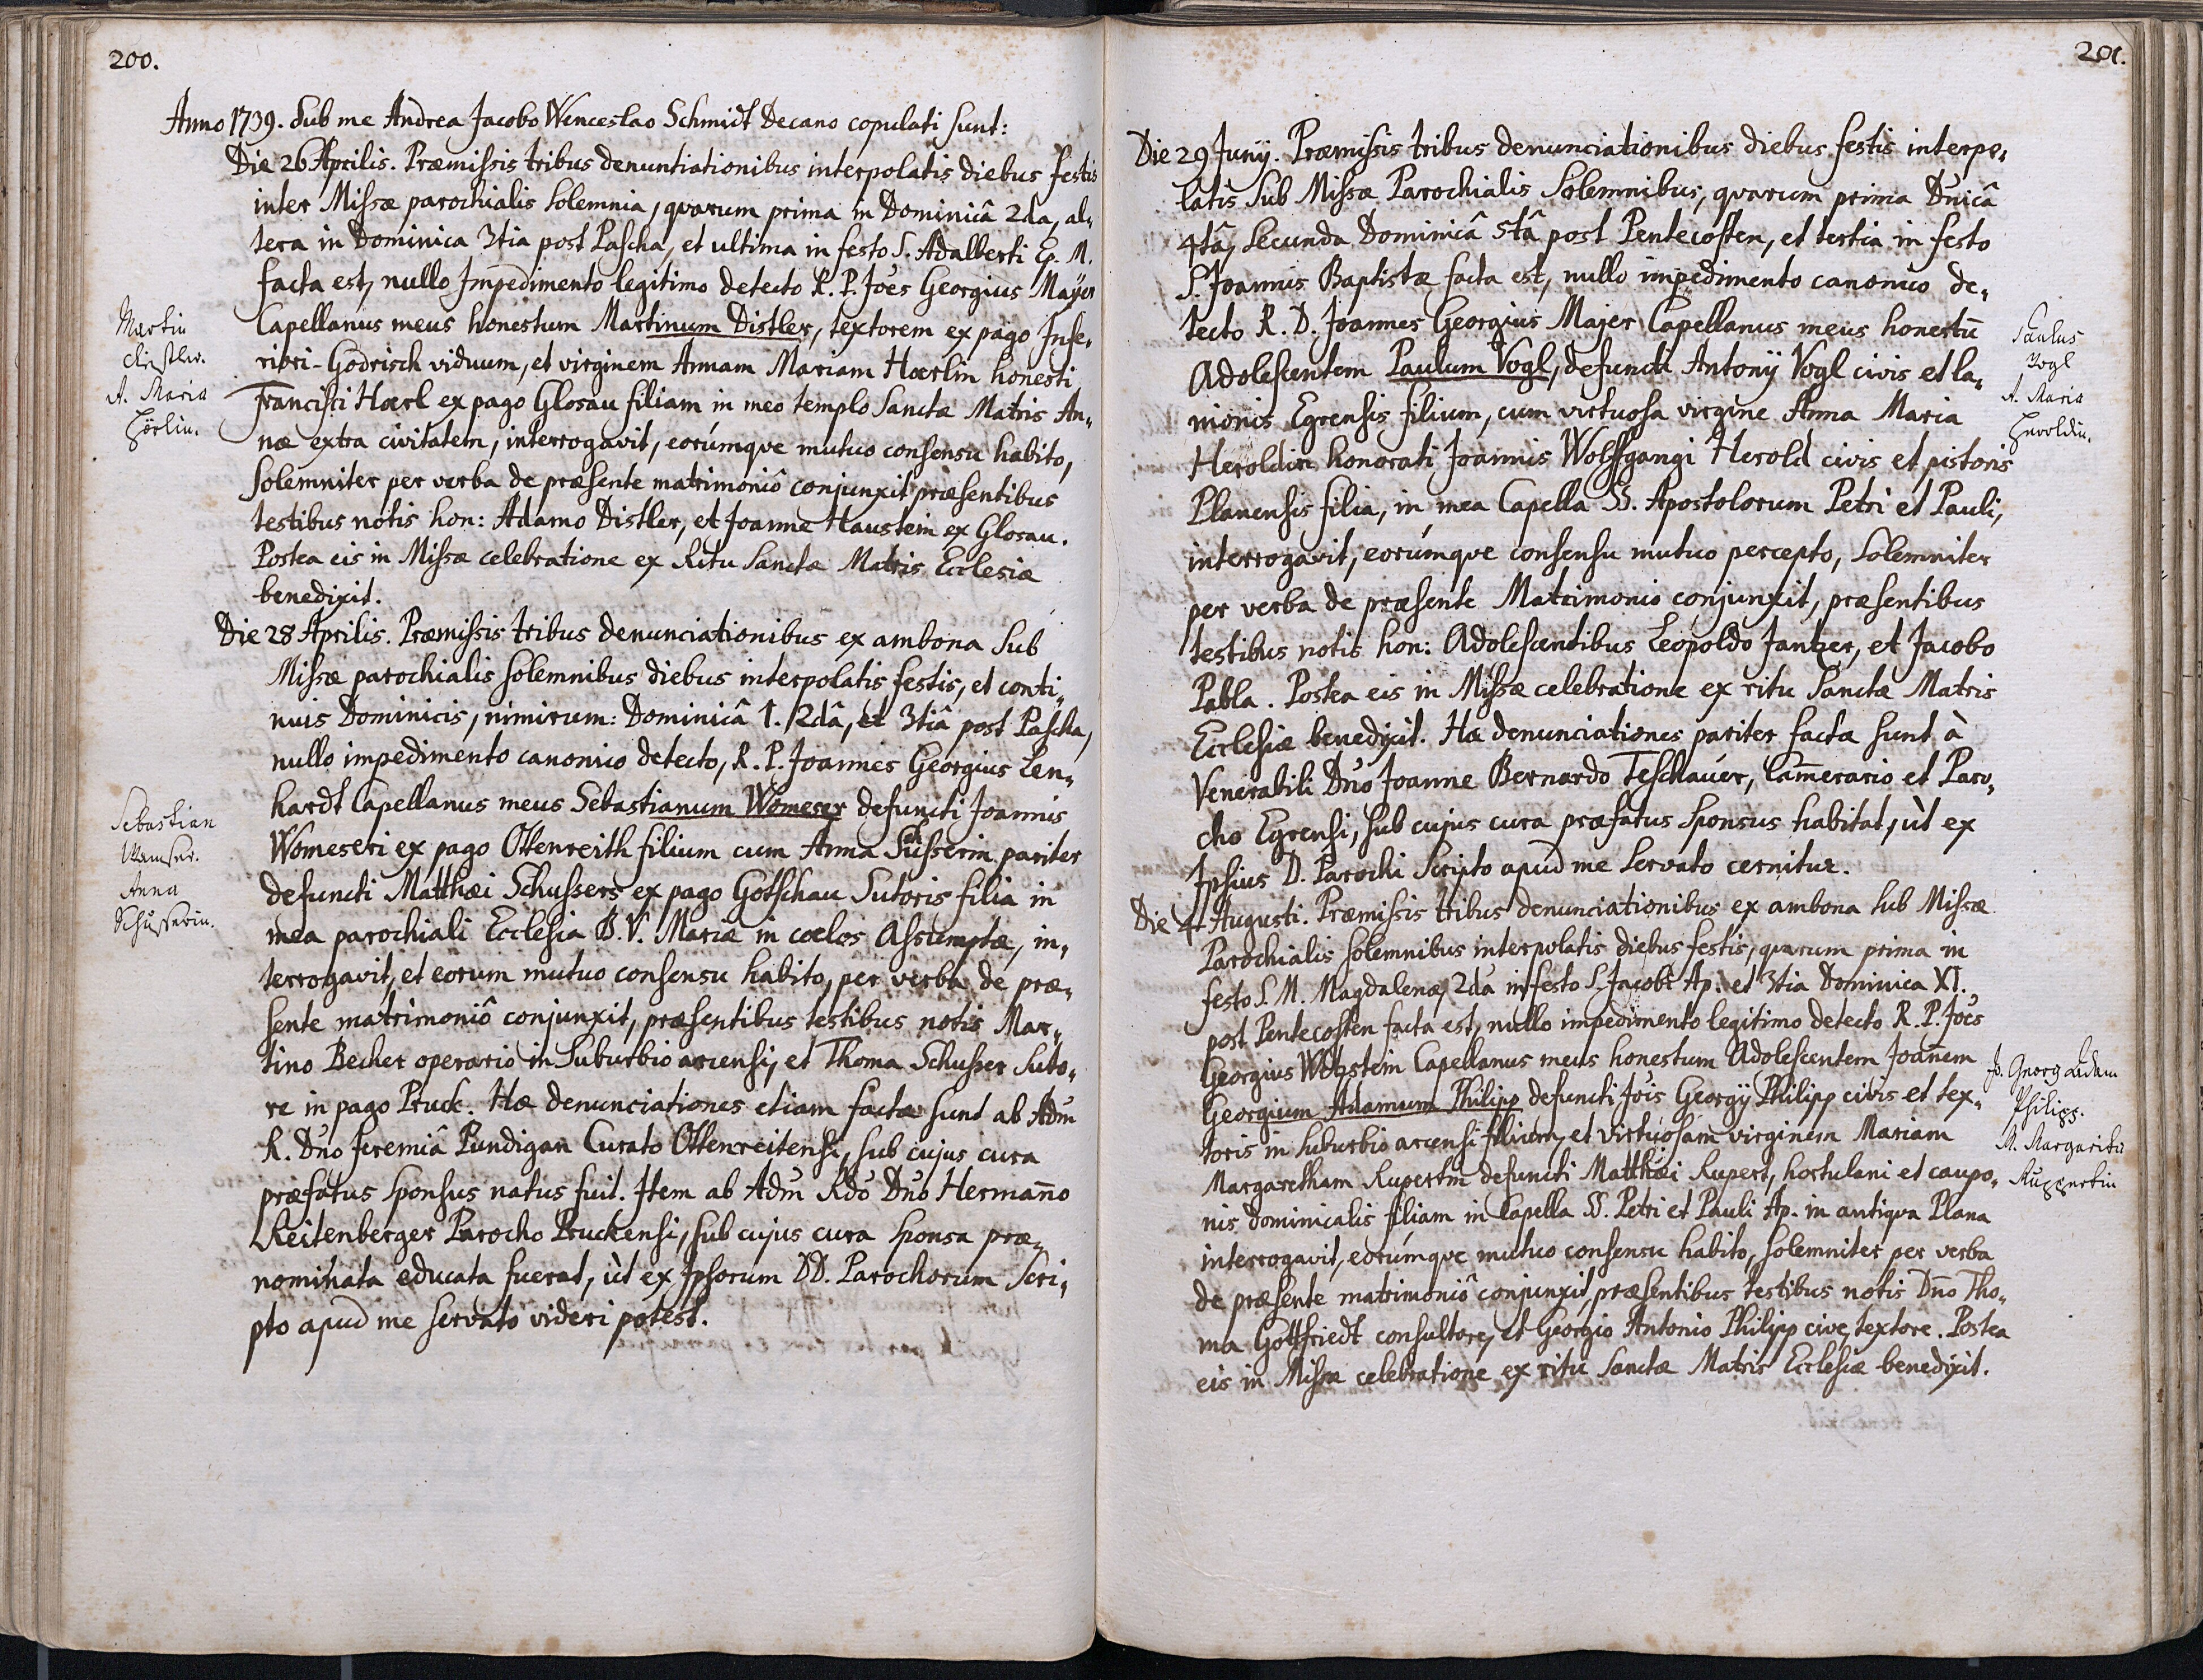 200.
Anno 1739. Sub me Andrea Jacobo Wenceslao Schmidt Decano copulati sunt:
Die 26 Aprilis. Præmissis tribus denuntiationibus interpolatis diebus festis
inter Missæ parochialis solemnia, quarum prima in Dominicâ 2da, al„
tera in Dominica 3tia post Pascha, et ultima in festo S. Adalberti Ep. M.
facta est, nullo Impedimento legitimo detecto R. P. Joês Georgius Mayer
Capellanus meus honestum Martinum Distler, textorem ex pago Infe„
riori-Godrisch viduum, et virginem Annam Mariam Hoerlin honesti
Francisci Hoerl ex pago Glosau filiam in meo templo Sanctæ Matris An„
næ extra civitatem, interrogavit, eorúmque mutuo consensu habito,
Solemniter per verba de præsente matrimoniô conjunxit præsentibus
testibus notis hon: Adamo Distler, et Joanne Haustein ex Glosau.
Postea eis in Missæ celebratione ex Ritu Sanctæ Matris Ecclesiæ
benedixit.
Martin
Distler.
A. Maria
Hörlin.
Die 28 Aprilis. Præmissis tribus denunciationibus ex ambona sub
Missæ parochialis solemnibus diebus interpolatis festis, et conti„
nuis Dominicis, nimirum: Dominicâ 1. 2dâ, et 3tiâ post Pascha,
nullo impedimento canonico detecto, R. P. Joannes Georgius Len„
hardt Capellanus meus Sebastianum Womeser defuncti Joannis
Womeseri ex pago Ottenreith filium cum Anna Schusserin pariter
defuncti Matthæi Schussers ex pago Gotschau Sutoris filia in
mea parochiali Ecclesia B. V. Mariæ in coelos Assumptæ, in„
terrogavit, et eorum mutuo consensu habito, per verba de præ„
sente matrimoniô conjunxit, præsentibus testibus notis Mar„
tino Becher operario in Suburbio arcensi, et Thoma Schusser Suto„
re in pago Pruck. Hæ denunciationes etiam factæ sunt ab Adm̄
R. Dn̄o Jeremiâ Pundigan Curato Ottenreitensi, sub cujus cura
præfatus Sponsus natus fuit. Item ab Adm̄ Rdō Dn̄o Herman̄o
Reitenberger Parocho Pruckensi, sub cujus cura Sponsa præ„
nominata educata fuerat, ùt ex Ipsorum DD. Parochorum Scri„
pto apud me servato videri potest.
Sebastian
Wamser.
Anna
Schusserin.
201.
Die 29 Junij. Præmissis tribus denunciationibus diebus festis interpo„
latis Sub Missæ Parochialis Solemnibus, quarum prima Dn̄icâ
4tâ, Secunda Dominicâ 5tâ post Pentecosten, et tertia in festo
S. Joannis Baptistæ facta est, nullo impedimento canonico de„
tecto R. D. Joannes Georgius Majer Capellanus meus honestū
Adolescentem Paulum Vogl, defuncti Antonij Vogl civis et la„
nionis Egrensis filium, cum virtuosa virgine Anna Maria
Heroldin honorati Joannis Wolffgangi Herold civis et pistoris
Planensis filia, in mea Capella SS. Apostolorum Petri et Pauli,
interrogavit, eorúmque consensu mutuo percepto, Solemniter
per verba de præsente Matrimonio conjunxit, præsentibus
testibus notis hon: Adolescentibus Leopoldo Jantzer, et Jacobo
Pabla. Postea eis in Missæ celebratione ex ritu Sanctæ Matris
Ecclesiæ benedixit. Hæ denunciationes pariter factæ sunt à
Venerabili Dn̄o Joanne Bernardo Teschauer, Cam̄erario et Paro„
cho Egrensi, sub cujus cura præfatus Sponsus habitat, ùt ex
Ipsius D. Parochi Scripto apud me servato cernitur.
Paulus
Vogl
A. Maria
Heroldin.
Die 4 Augusti. Præmissis tribus denunciationibus ex ambona sub Missæ
Parochialis solemnibus interpolatis diebus festis, quarum prima in
festo S. M. Magdalenæ, 2da in festo S. Jacobi Ap. et 3tia Dominica XI.
post Pentecosten facta est, nullo impedimento legitimo detecto R. P. Joês
Georgius Capellanus meus honestum Adolescentem Joan̄em
Georgium Adamum Philipp defuncti Jois Georgij Philipp civis et tex„
toris in suburbio arcensi filium, et virtuosam virginem Mariam
Margaretham Rupertin defuncti Matthæi Rupert, hortulani et caupo„
nis dominicalis filiam in Capella SS. Petri et Pauli Ap. in antiqua Plana
interrogavit, eorúmque mutuo consensu habito, solemniter per verba
de præsente matrimoniô conjunxit, præsentibus testibus notis Dn̄o Tho„
ma Gottfriedt consultore, et Georgio Antonio Philipp cive, textore. Postea
eis in Missæ celebratione ex ritu Sanctæ Matris Ecclesiæ benedixit.
Jo. Georg Adam
Philipp.
M. Margaritha
Ruppertin